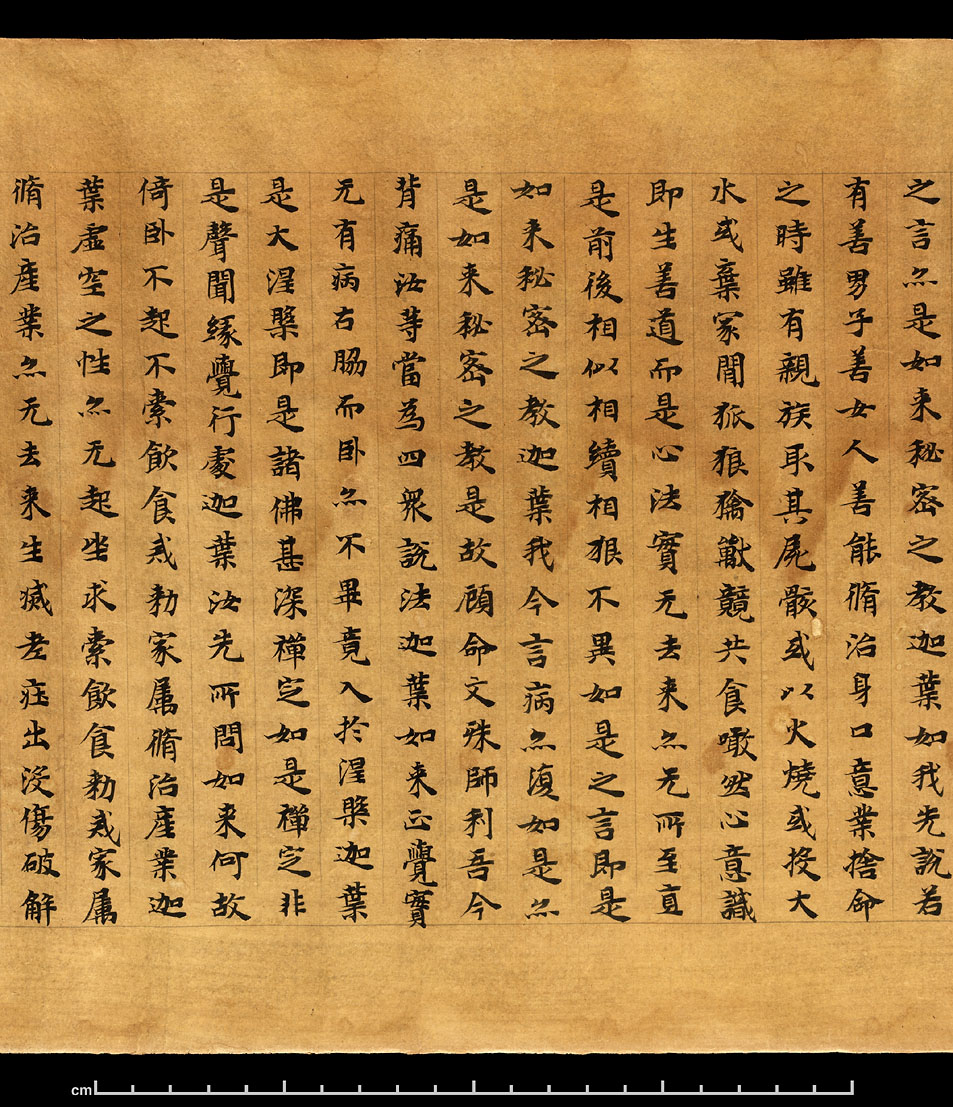 之言亦是如来秘密之教迦葉如我先說若
有善男子善女人善能脩治身口意業捨命
之時雖有親族取其屍骸或以火燒或投大
水或棄冢間狐狼禽獸競共食噉然心意識
即生善道而是心法實无去来亦无所至直
是前後相似相續相狠不異如是之言即是
如来秘密之教迦葉我今言病亦復如是亦
是如来秘密之教是故顧命文殊師利吾今
背痛汝等當為四衆說法迦葉如来正覺實
无有病右脇而卧亦不畢竟入扵涅槃迦葉
是大涅槃即是諸佛甚深禪定如是禪定非
是聲聞緣覺行處迦葉汝先所問如来何故
倚卧不起不索飲食戒勑家屬脩治產業迦
葉虛空之性亦无起坐求索飲食勑戒家屬
脩治產業亦无去来生滅老壮出没傷破解
cm